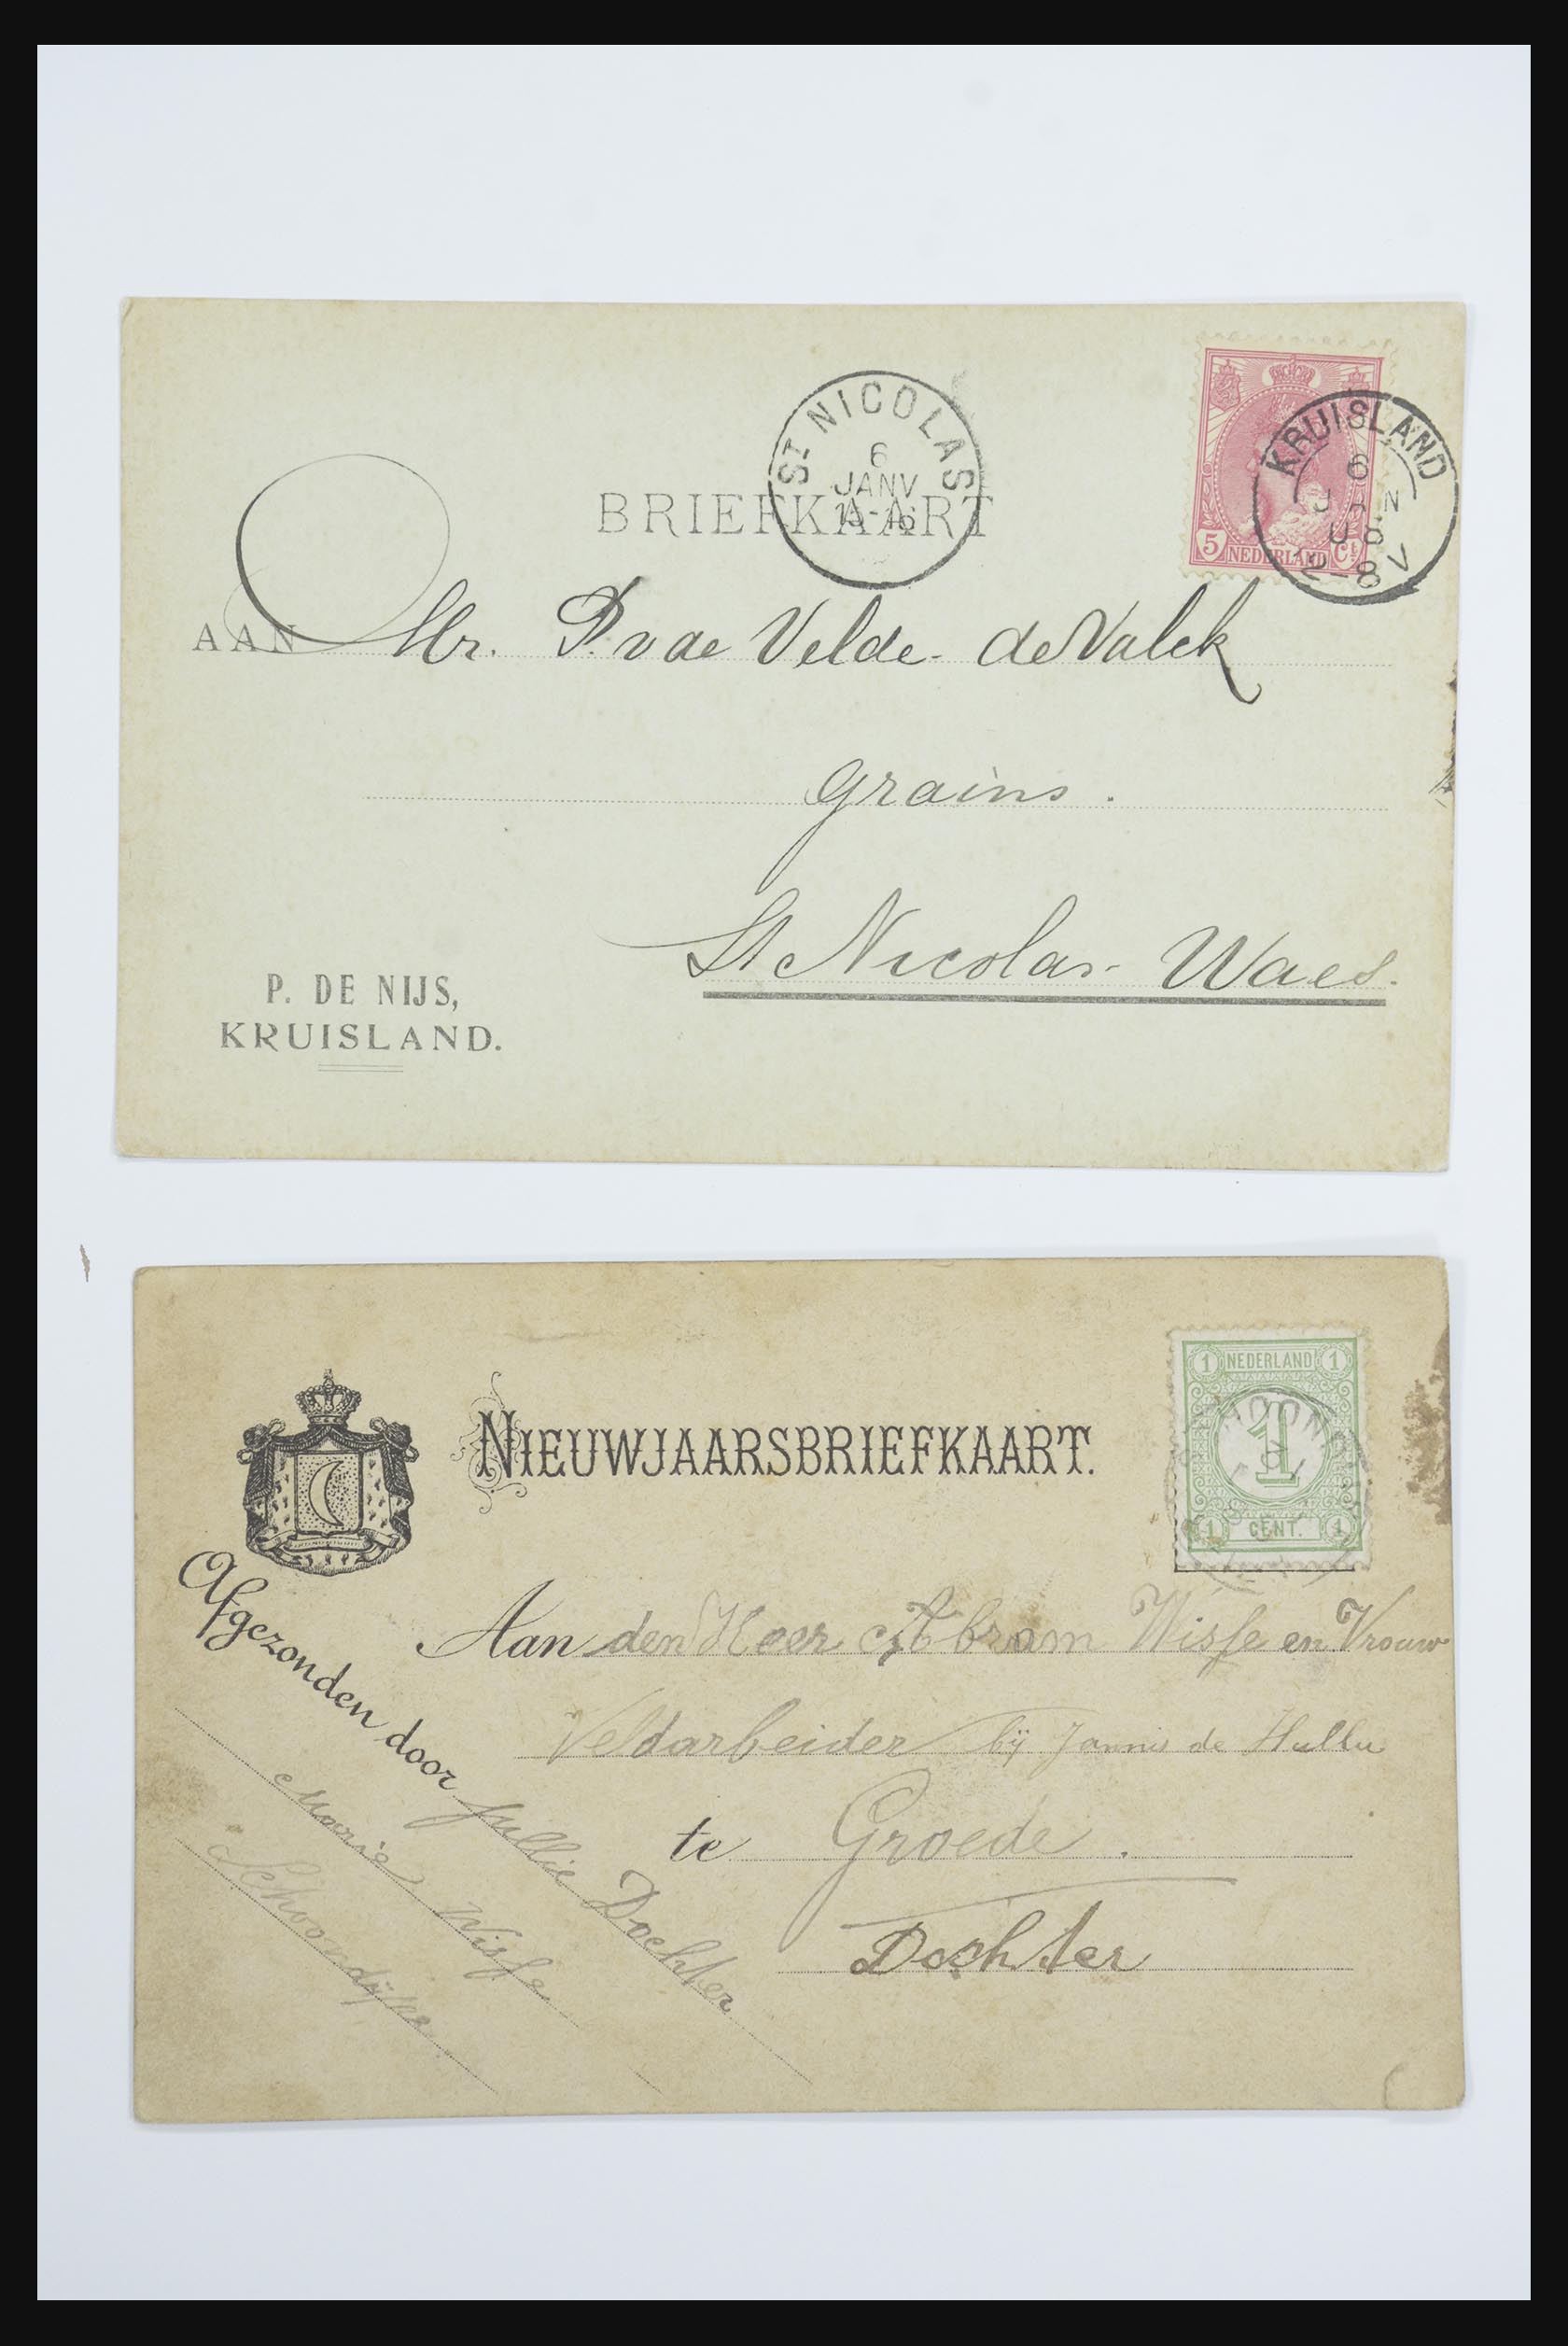 St NICOLAS
6
JANV
BRIEFKAART
5 NEDERLAND Ct
KRUISLAND
6
JAN
8 V
AAN Mr. P. v de Velde-de Valck
grains.
St Nicolas-Waes.
P. DE NIJS,
KRUISLAND.
NIEUWJAARSBRIEFKAART.
1 NEDERLAND 1
1
1 CENT. 1
Aan den Heer Abram Wisse en Vrouw
Veldarbeider bij Jannis de Hullu
te Groede.
Dochter
Afgezonden door jullie Dochter
Marie Wisse
Schoondijke